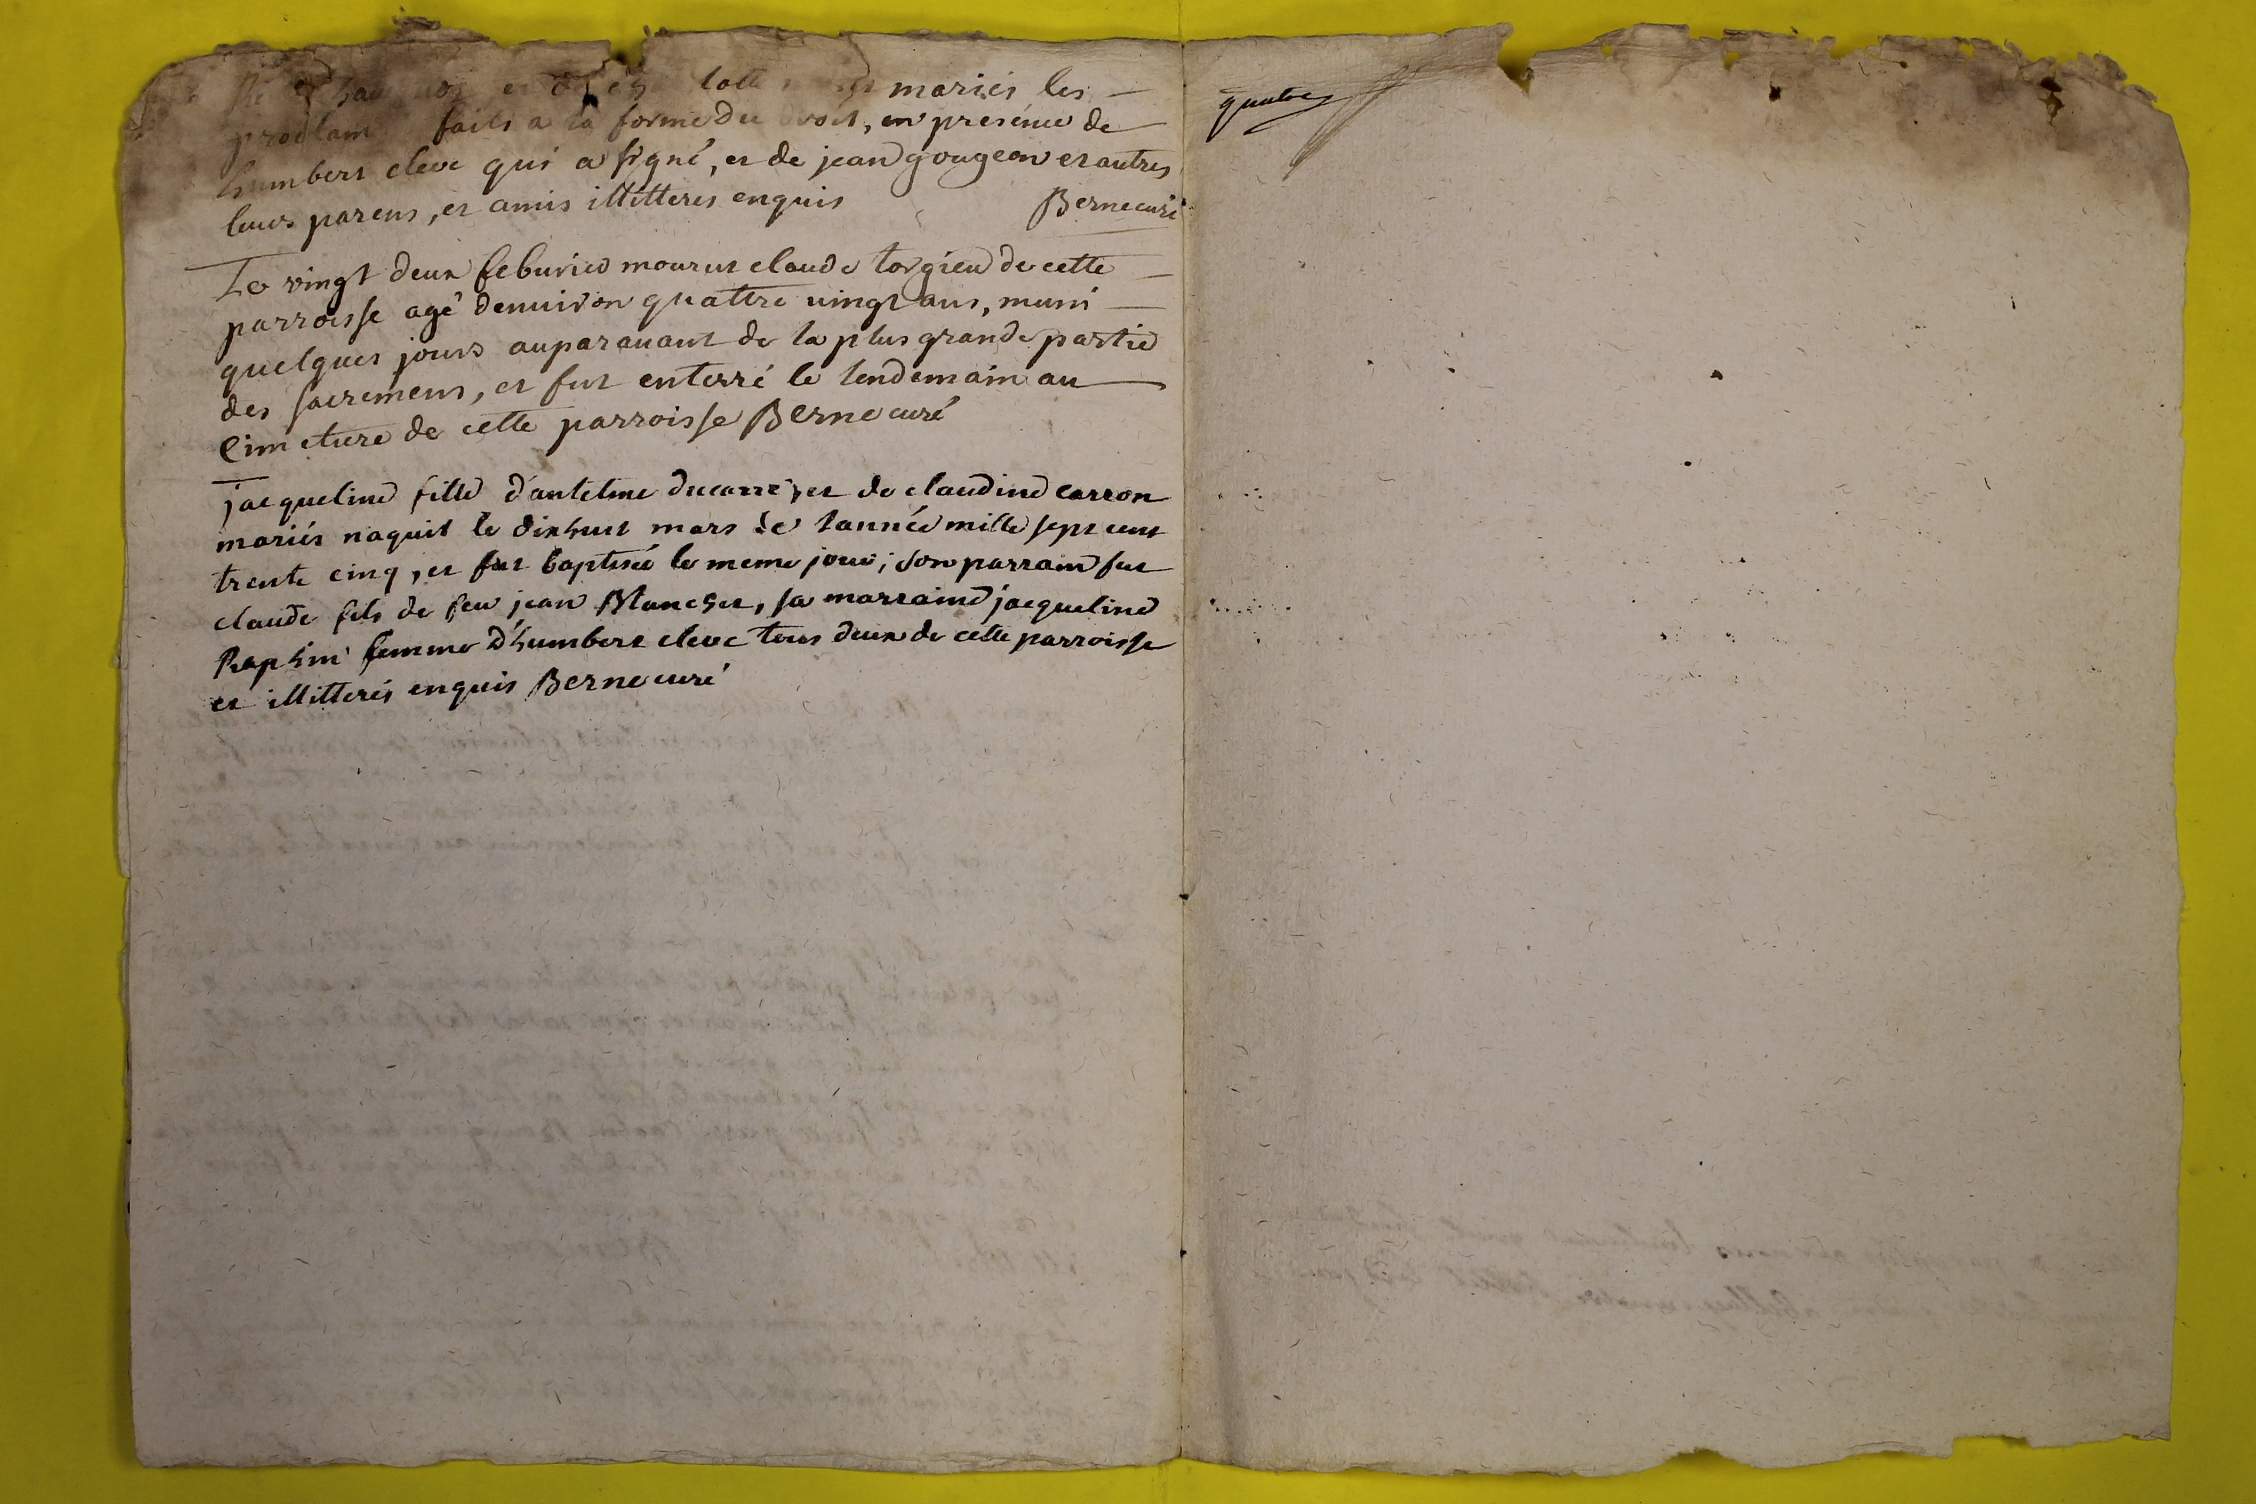 mariés les
faits a la forme du droit, en presence de
humbert cleve qui a signé, et de jean gougeon et autres
leurs parens, et amis illitteres enquis Berne curé
Le vingt deux feburier mourut claude torgieu de cette
parroisse agé denuiron quattre uingt ans, muni
quelques jours auparauant de la plus grande partie
des sacremens, et fut enterré le lendemain au
Cimetiere de cette parroisse Berne curé
jacqueline fille d'antelme ducarre, et de claudine carron
mariés naquit le dixhuit mars de lannée mille sept cent
trente cinq, et fut baptisée le meme jour; son parrain fut
claude fils de feu jean Blanchet, sa marraine jacqueline
Raphin femme d'humbert cleve tous deux de cette parroisse
et illitterés enquis Berne curé
quatre